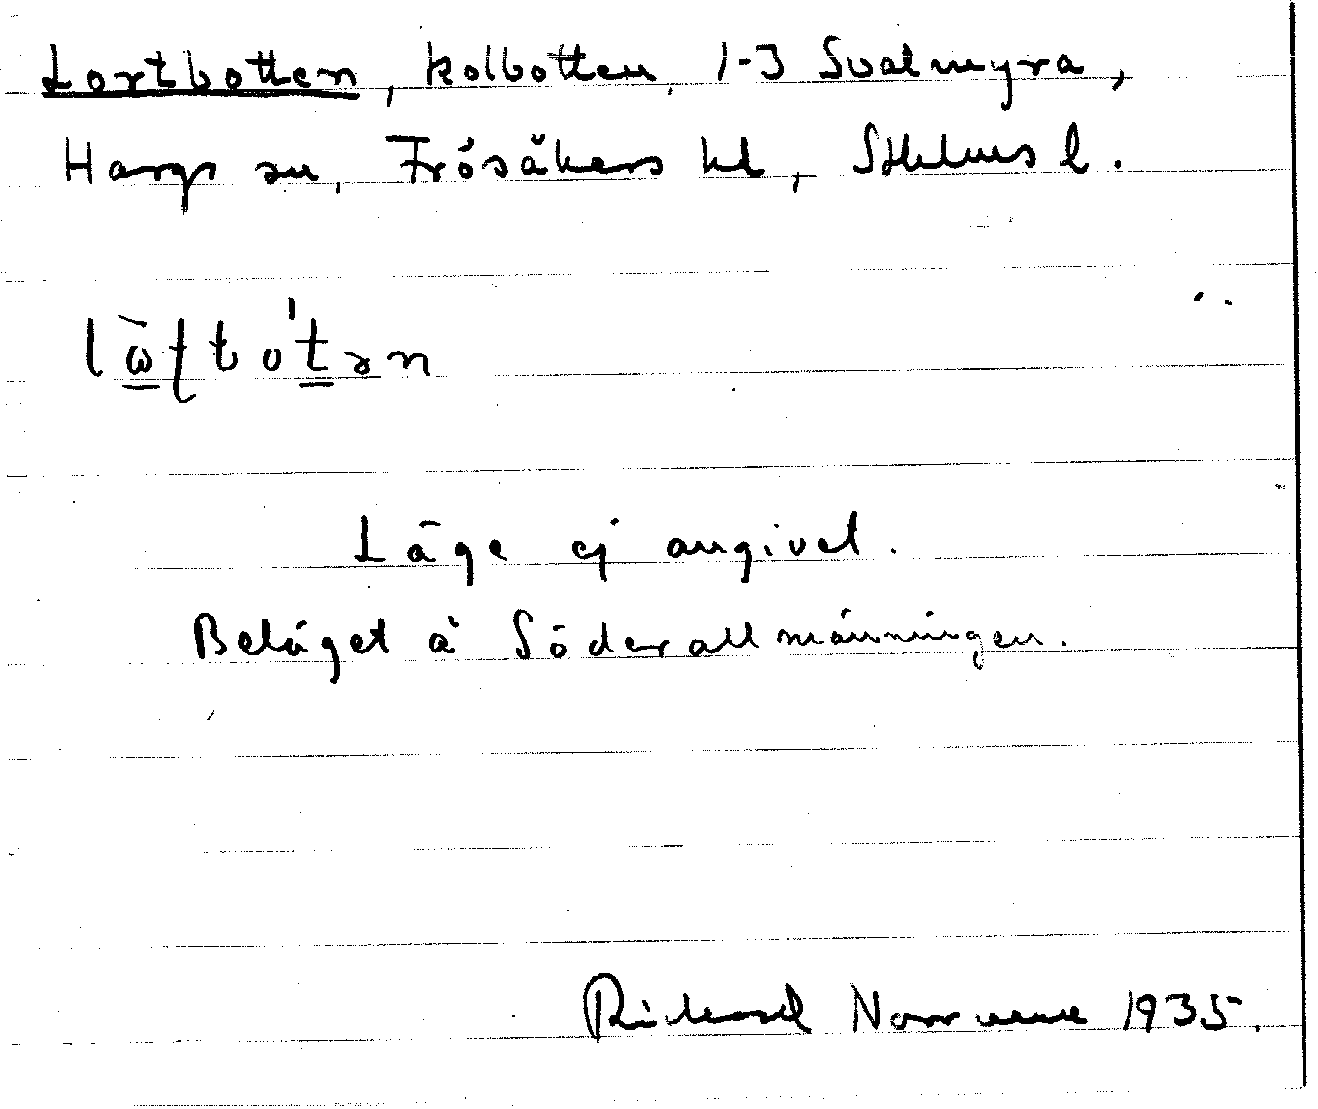 Lortbotten, kolbotten, 1-3 Svalmyra,
Hargs sn, Frösåkers hd, Sthlms l.
Läge ej angivet.
Beläget å Söderallmänningen.
Richard Norrman 1935.